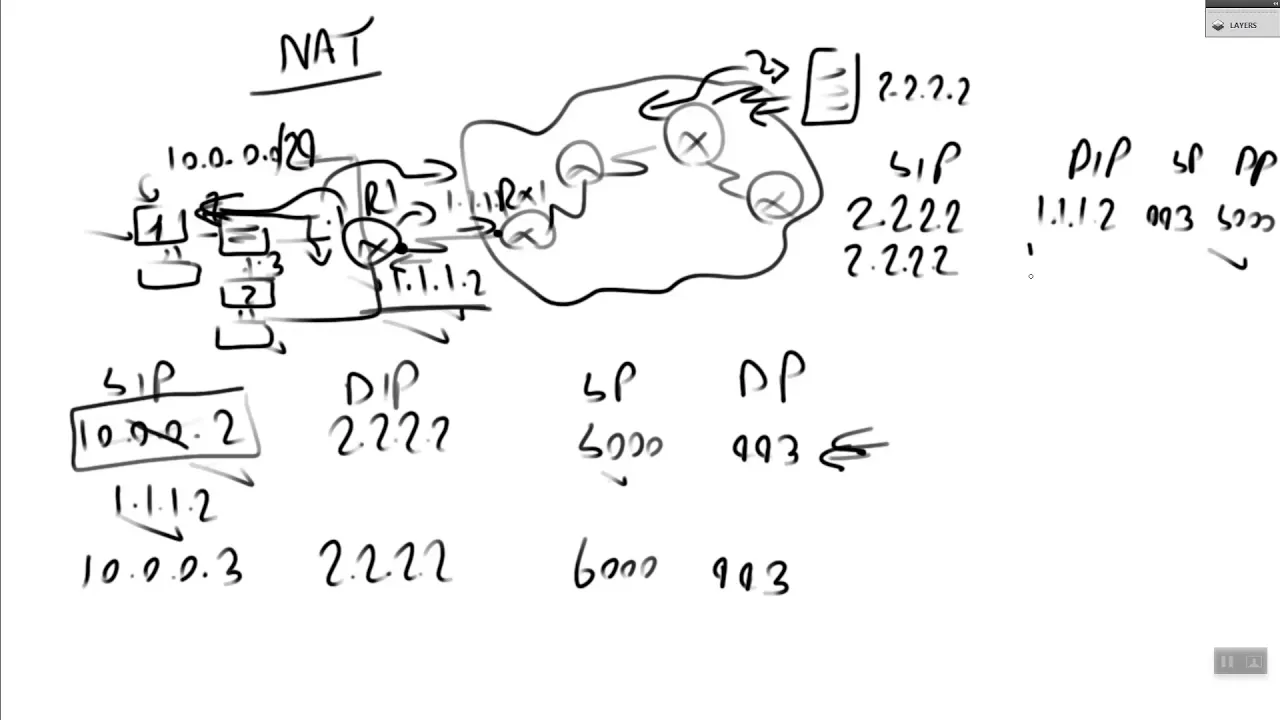 NAT
LAYERS
2.2.2.2
10.0.0.0/29
R1
1.1.1.1
Rx1
SIP DIP SP DP
2.2.2.2 1.1.1.2 993 5000
2.2.2.2 1
1
.3
2
1.1.1.2
SIP DIP SP DP
10.0.0.2 2.2.2.2 5000 993
1.1.1.2
10.0.0.3 2.2.2.2 6000 993